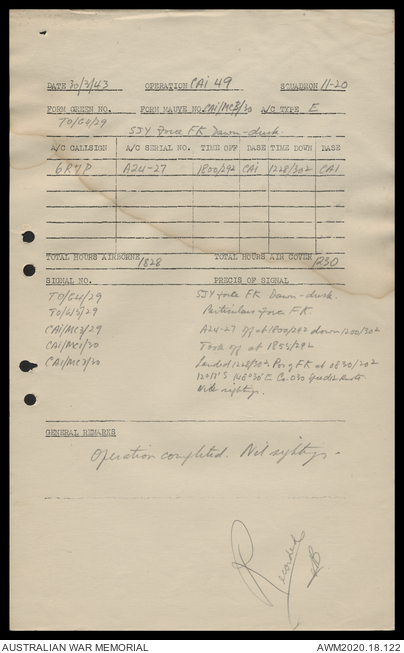 DATE 30/3/43 OPERATION CAI 49 SQUADRON 11-20
FORM GREEN NO. FORM MAUVE NO. CAI/MC3/30 A/C TYPE E
TO/G4/29
SJY force FK Dawn-dusk.
A/C CALLSIGN A/C SERIAL NO. TIME OFF BASE TIME DOWN BASE
6R7P A24-27 1800/292 CAI 1228/302 CAI
TOTAL HOURS AIRBORNE 1828 TOTAL HOURS AIR COVER 1230
SIGNAL NO. PRECIS OF SIGNAL
TO/G4/29 SJY force FK Dawn-dusk.
TO/W5/29 Particulars force FK
CAI/MC2/29 A24-27 off at 1800/292 down 1200/302
CAI/MC1/30 Took off at 1855/292
CAI/MC3/30 Landed 1228/302 Posn of FK at 1830/202
12018'S 148°36'E Co. 030
Nil sightings.
GENERAL REMARKS
Operation completed. Nil sightings.
Recorded
AUSTRALIAN WAR MEMORIAL AWM2020.18.122